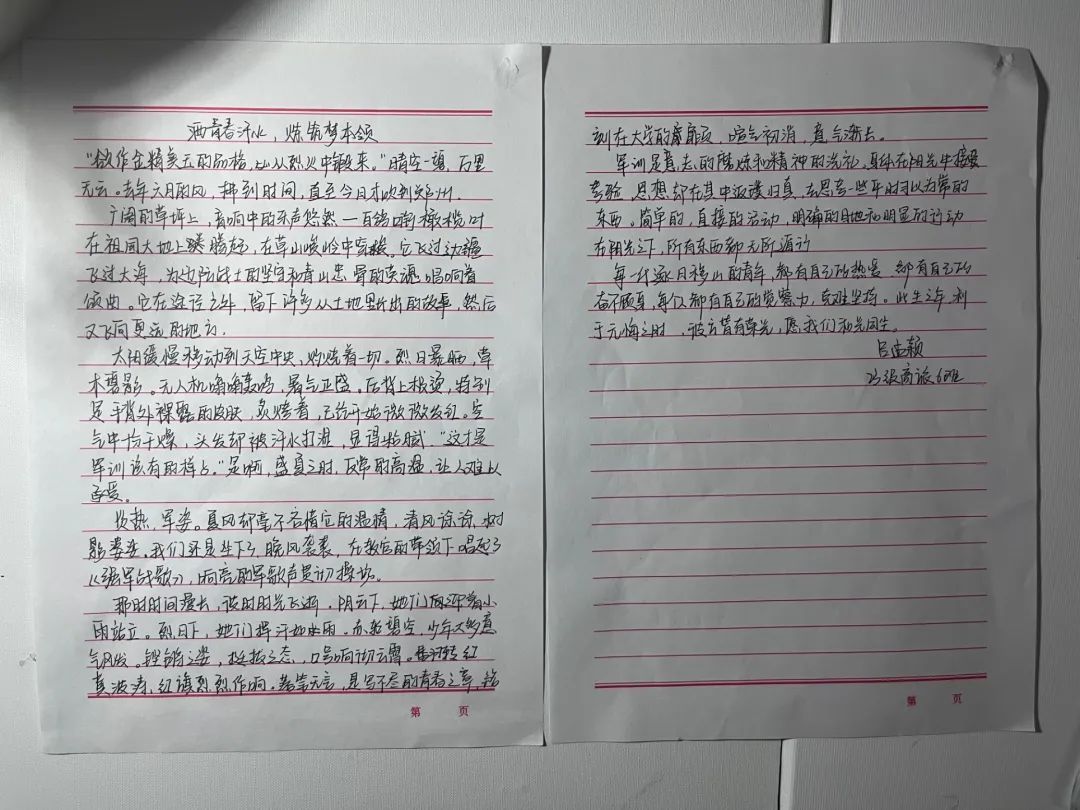 洒青春汗水，炼筑梦本领
"欲作金精美玉的品格，必从烈火中锻来。"晴空一碧，万里
无云。去年六月的风，拂到时间，直至今日才吹到
广阔的草坪上，音响中的乐声悠然
在祖国大地上腾起，在草山峻岭中穿梭。它飞过边疆
飞过大海，为边防战士的坚守和青山忠骨的英魂唱响着
颂曲。它在途径之外，留下许多从土地里长出的故事，然后
又飞向更远的地方。
太阳缓慢移动到天空中央，灼烧着一切。烈日暴晒，草
木 。无人机嗡嗡轰鸣，暑气正盛。后背上横烫，特别
是手背外裸露的皮肤，炙烤着，已经开始微微发红。空
气中均干燥，头发却被汗水打湿，显得粘腻"这才是
军训该有的样子。"是啊，盛夏之时，反常的高温，让人难以
忍受。
炎热，军姿。夏风却毫不吝惜它的温情，清风徐徐，树
影婆娑。我们还是坐下了，晚风袭袭，在教官的带领下唱起了
《强军战歌》，响亮的军歌声贯彻操场。
那时时间漫长，该时时光飞逝，阴云下，她们面迎着小
雨站立。烈日下，她们挥汗如雨。 碧空，少年大多意
气风发。铿锵之姿，挺拔之态，口号响彻云霄。
波涛，红旗烈烈作响。着笔无言，是写不尽的青春之章，铭
刻在大学的扉页，暄气初消，意气渐长。
军训是意志的磨炼和精神的洗礼，身体在阳光中接受
考验，思想却在其中返璞归真，在思考一些平时习以为常的
东西。简单的，直接的活动，明确的目地和明显的行动
在阳光之下，所有东西都无所遁行
每一代逐日移山的青年，都有自己的热爱，都有自己的
奋不顾身，每代都有自己的觉察力，克难坚持。此生之年，利
于无悔之时，彼方皆有荣光，愿我们和光同生。
吕 颖
23级商旅6班
第 页
第 页